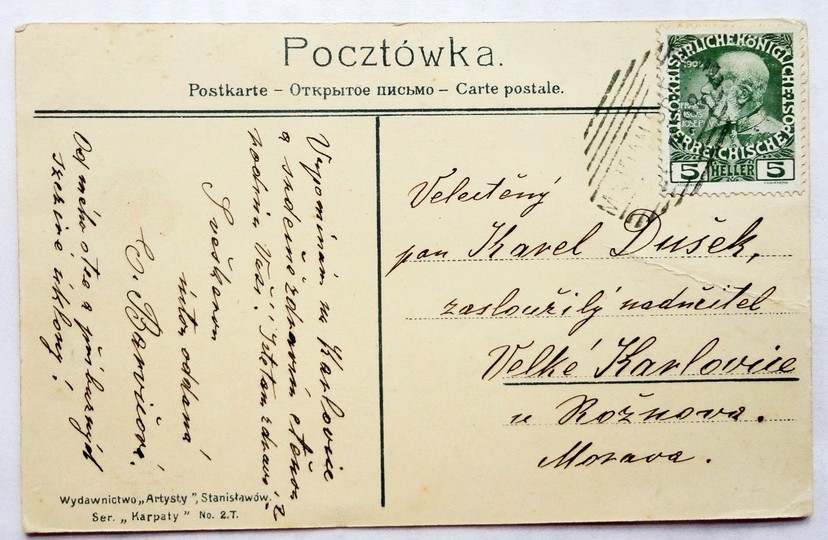 Pocztówka.
Postkarte – Открытое письмо – Carte postale.
Vzpomínám na Karlovice
a srdečně zdravím ctěnou
rodinu Vaši.
S veškerou
úctou oddaná
Od mého otce a příbuzných
srdečné úklony!
Velectěný
pan Karel Dušek,
zasloužilý nadučitel
Velké Karlovice
u Rožnova.
Morava.
KAISERLICHE KÖNIGLICHE
ÖSTERREICHISCHE
5 HELLER 5
Wydawnictwo „Artysty”, Stanisławów.
Ser. „Karpaty” No. 2.T.